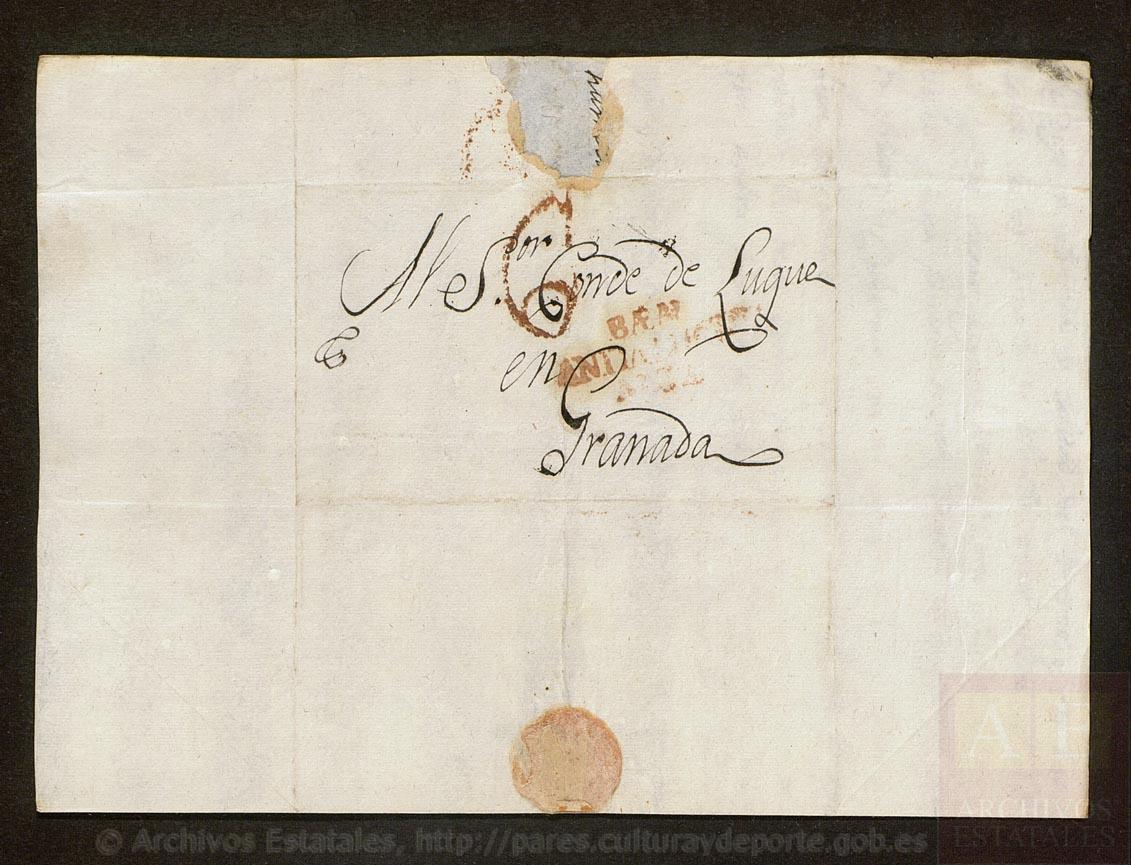 Al S.or Conde de Luque
en
Granada
6
BÆN
© Archivos Estatales, http://pares.culturaydeporte.gob.es
AE
ARCHIVOS
ESTATALES